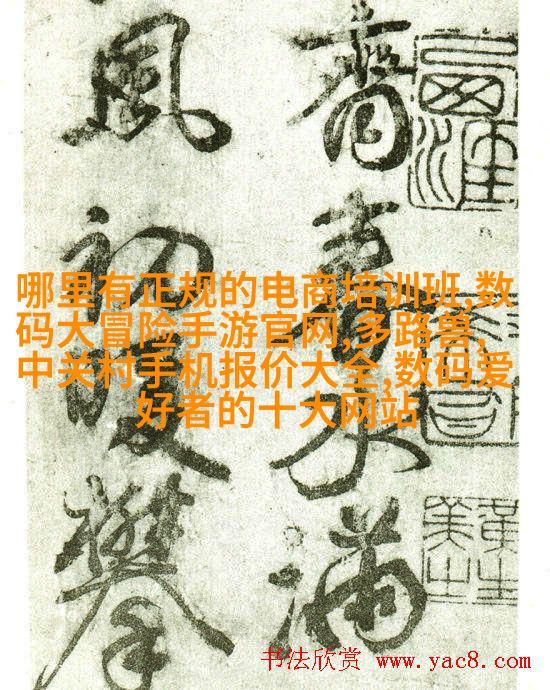 水滿
風初
哪里有正规的电商培训班,数
码大冒险手游官网,多路兽,
中关村手机报价大全,数码爱
好者的十大网站
书法欣赏 www.yac8.com